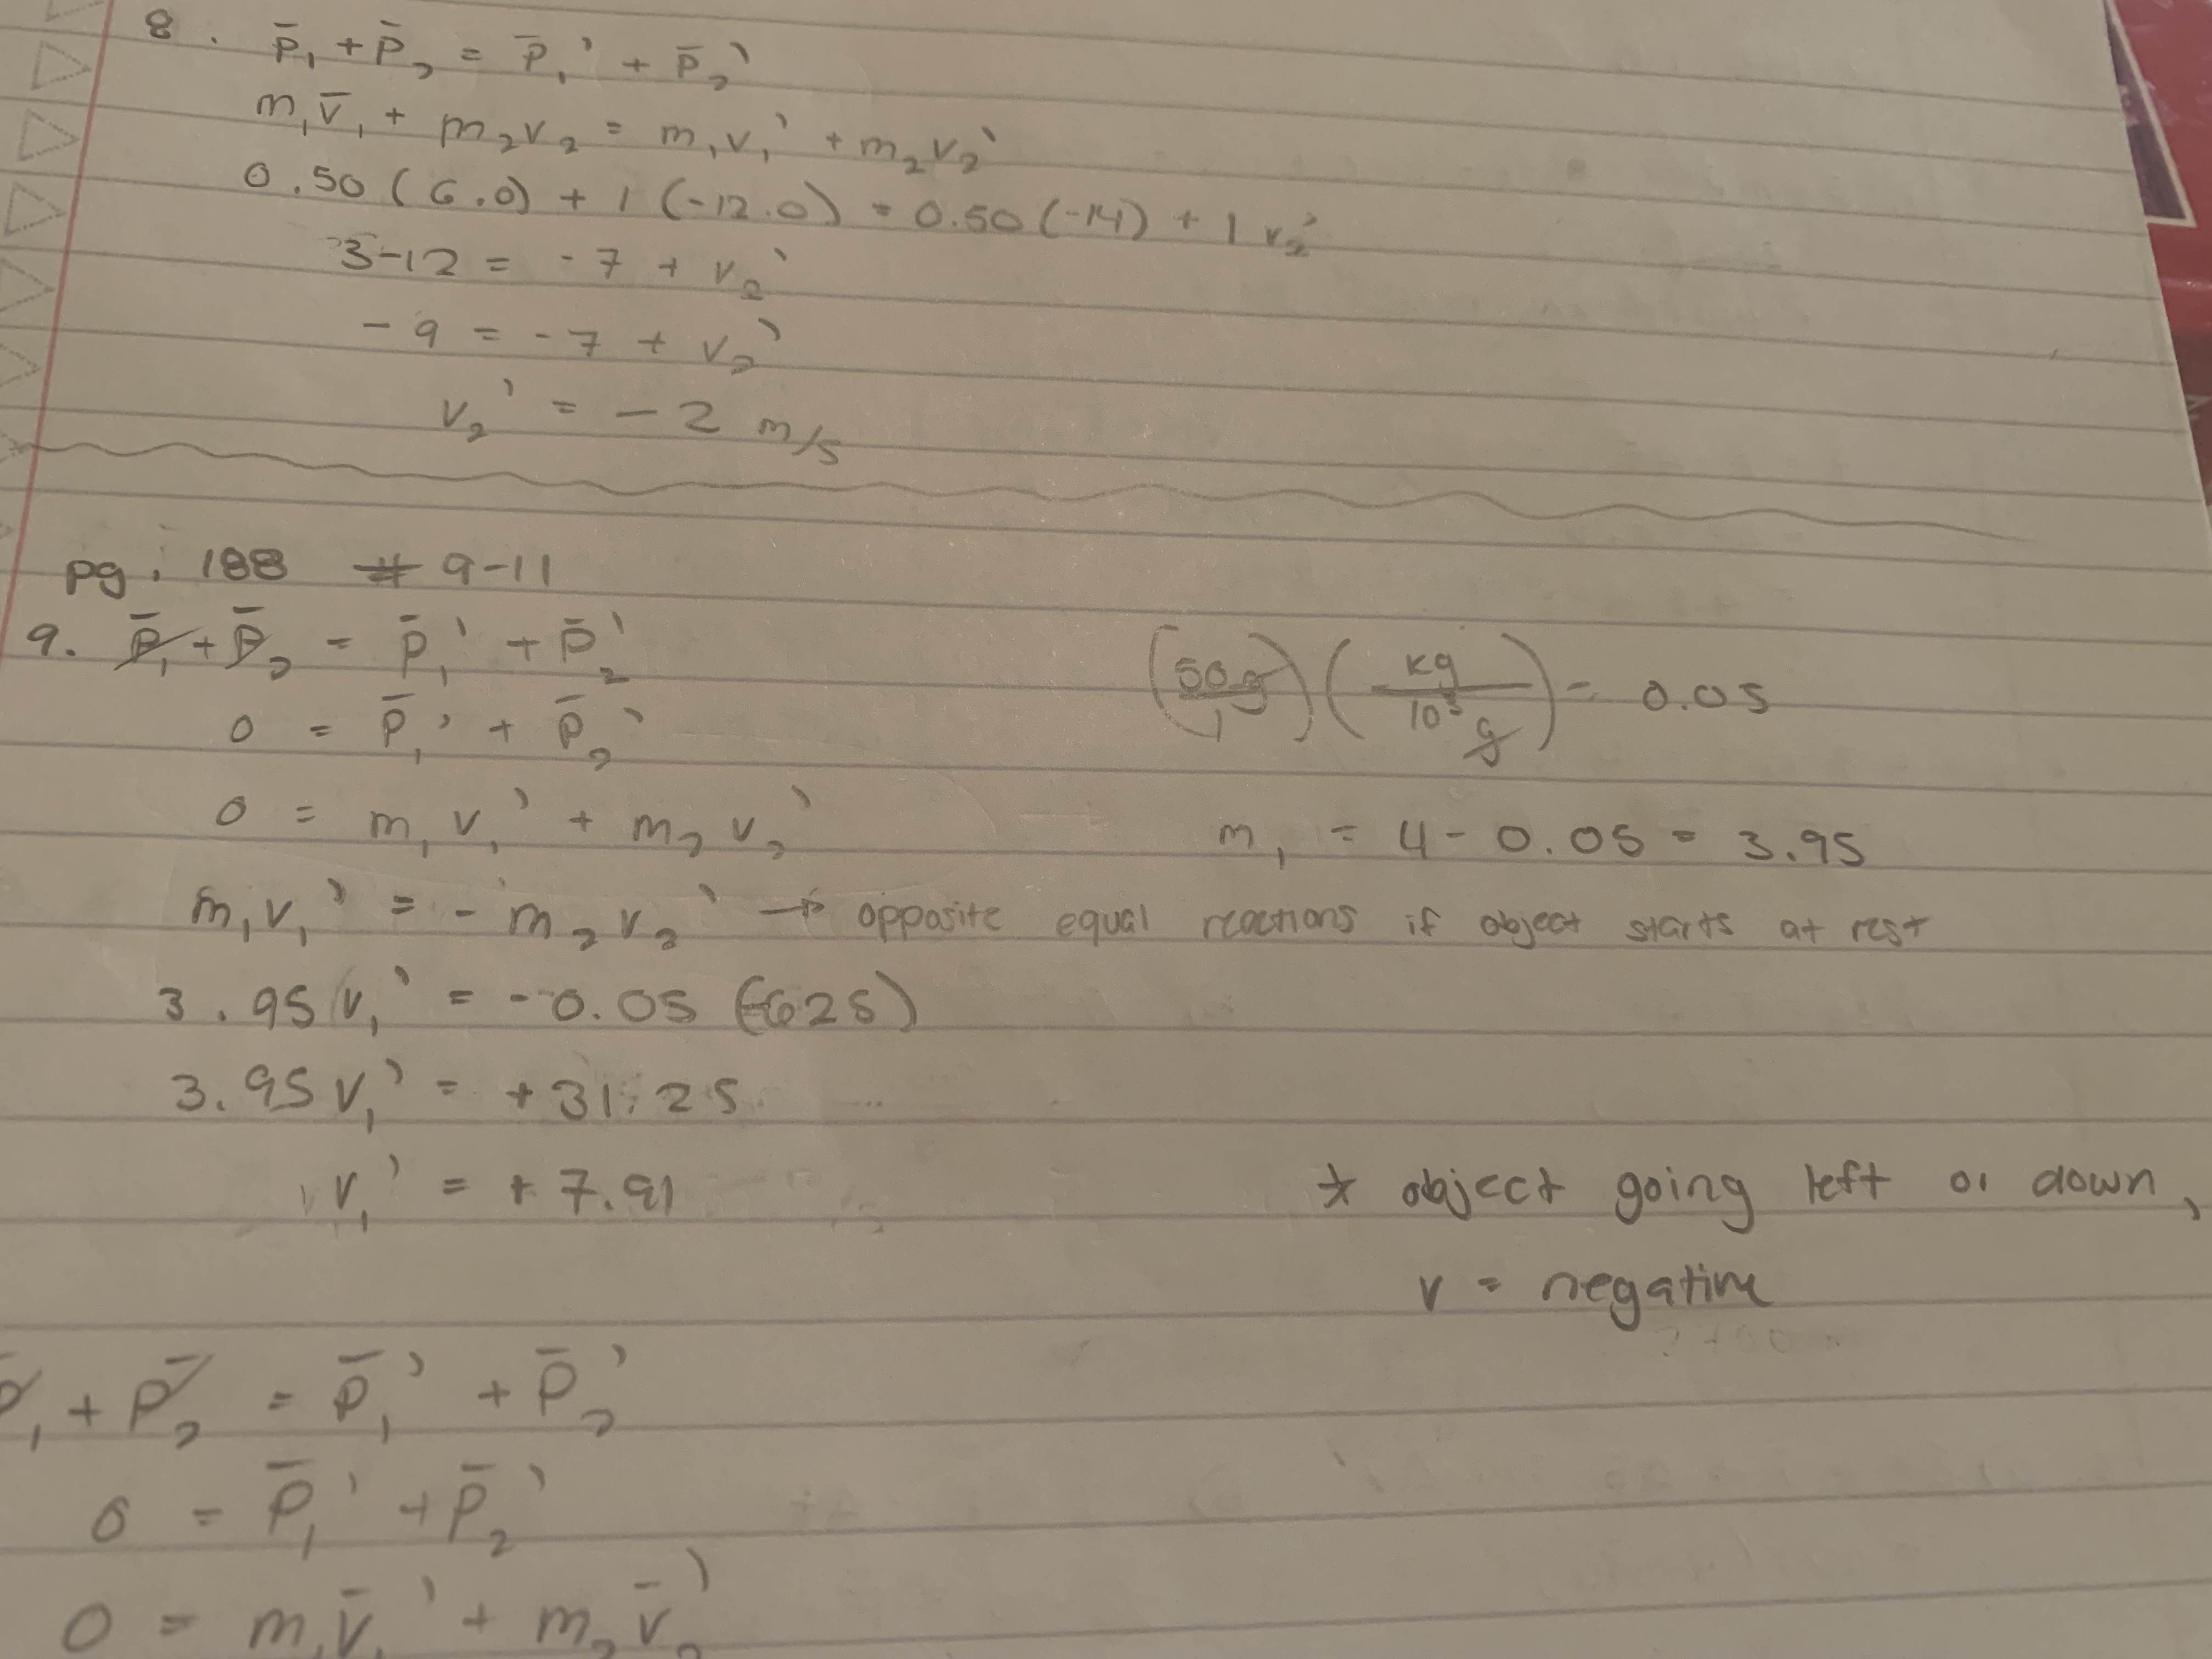 8. p̄₁ + p̄₂ = p̄₁' + p̄₂'
m₁v̄₁ + m₂v₂ = m₁v₁' + m₂v₂'
0.50 (6.0) + 1 (-12.0) = 0.50 (-14) + 1 v₂'
3-12 = -7 + v₂'
-9 = -7 + v₂'
v₂' = -2 m/s
pg. 188 # 9-11
9. p̄₁ + p̄₂ = p̄₁' + p̄₂'
(50g/1)(kg/10³g) = 0.05
0 = p̄₁' + p̄₂'
0 = m₁v₁' + m₂v₂'
m₁ = 4 - 0.05 = 3.95
m₁v₁' = -m₂v₂' → opposite equal reactions if object starts at rest
3.95 v₁' = -0.05 (-625)
3.95 v₁' = +31.25
v₁' = +7.91
* object going left or down,
v = negative
p̄₁ + p̄₂ = p̄₁' + p̄₂'
0 = p̄₁' + p̄₂'
0 = m₁v̄₁' + m₂v̄₂'